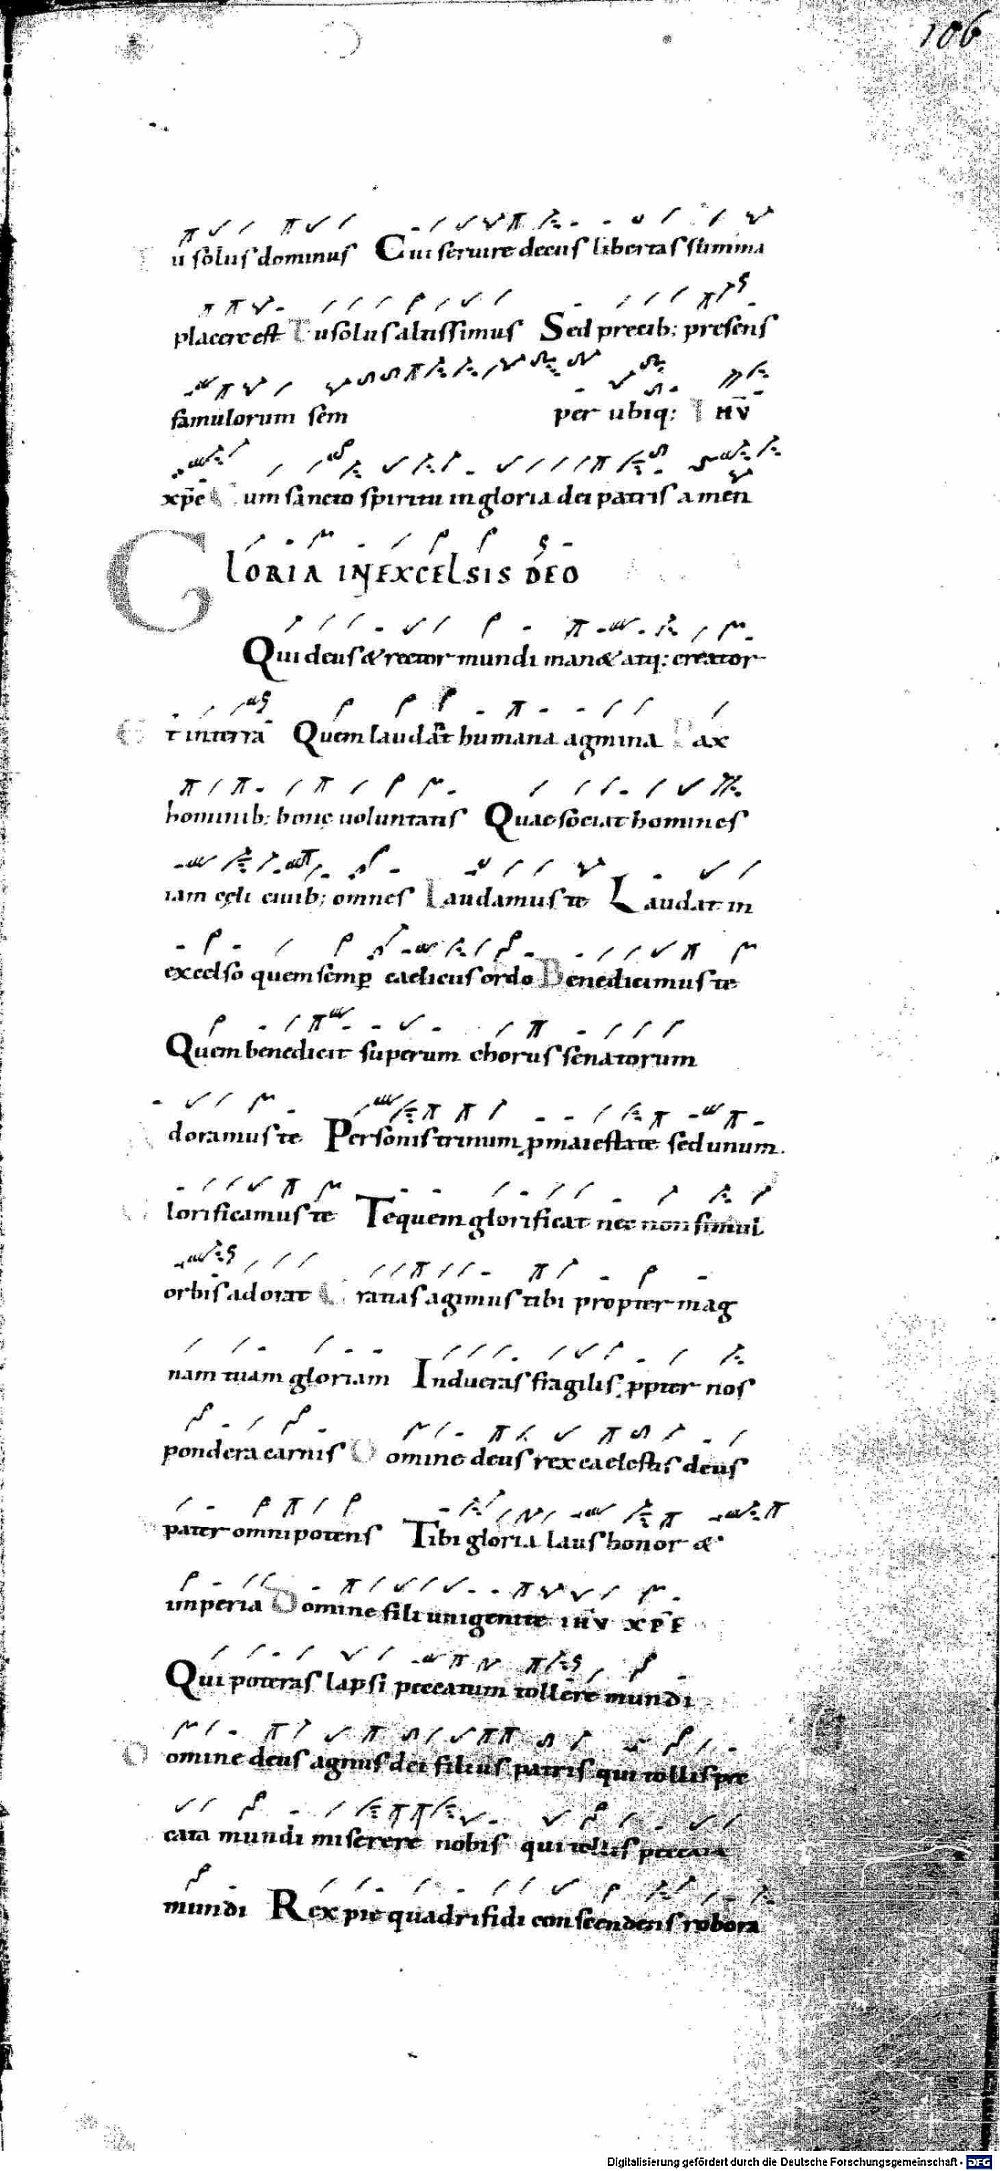 106
Tu solus dominus Cui seruire decus libertas summa
placere est Tu solus altissimus Sed precib; presens
famulorum sem per ubiq; IHV
xpe Cum sancto spiritu in gloria dei patris amen
GLORIA IN EXCELSIS DEO
Qui deus & rector mundi man& atq; creator
Et in terra Quem laudat humana agmina Pax
hominib; bonę uoluntatis Quae sociat homines
iam cęli ciuib; omnes Laudamus te Laudat in
excelso quem semp caelicus ordo Benedicimus te
Quem benedicit superum chorus senatorum
Adoramus te Personis trinum p maiestate sed unum.
Glorificamus te Te quem glorificat nec non simul
orbis adorat Gratias agimus tibi propter mag
nam tuam gloriam Indueras fragilis ppter nos
pondera carnis Domine deus rex caelestis deus
pater omnipotens Tibi gloria laus honor &
imperia Domine fili unigenite IHV XPE
Qui poteras lapsi peccatum tollere mundi
Domine deus agnus dei filius patris qui tollis pec
cata mundi miserere nobis qui tollis peccata
mundi Rex pie quadrifidi conscendens robora
Digitalisierung gefördert durch die Deutsche Forschungsgemeinschaft - DFG